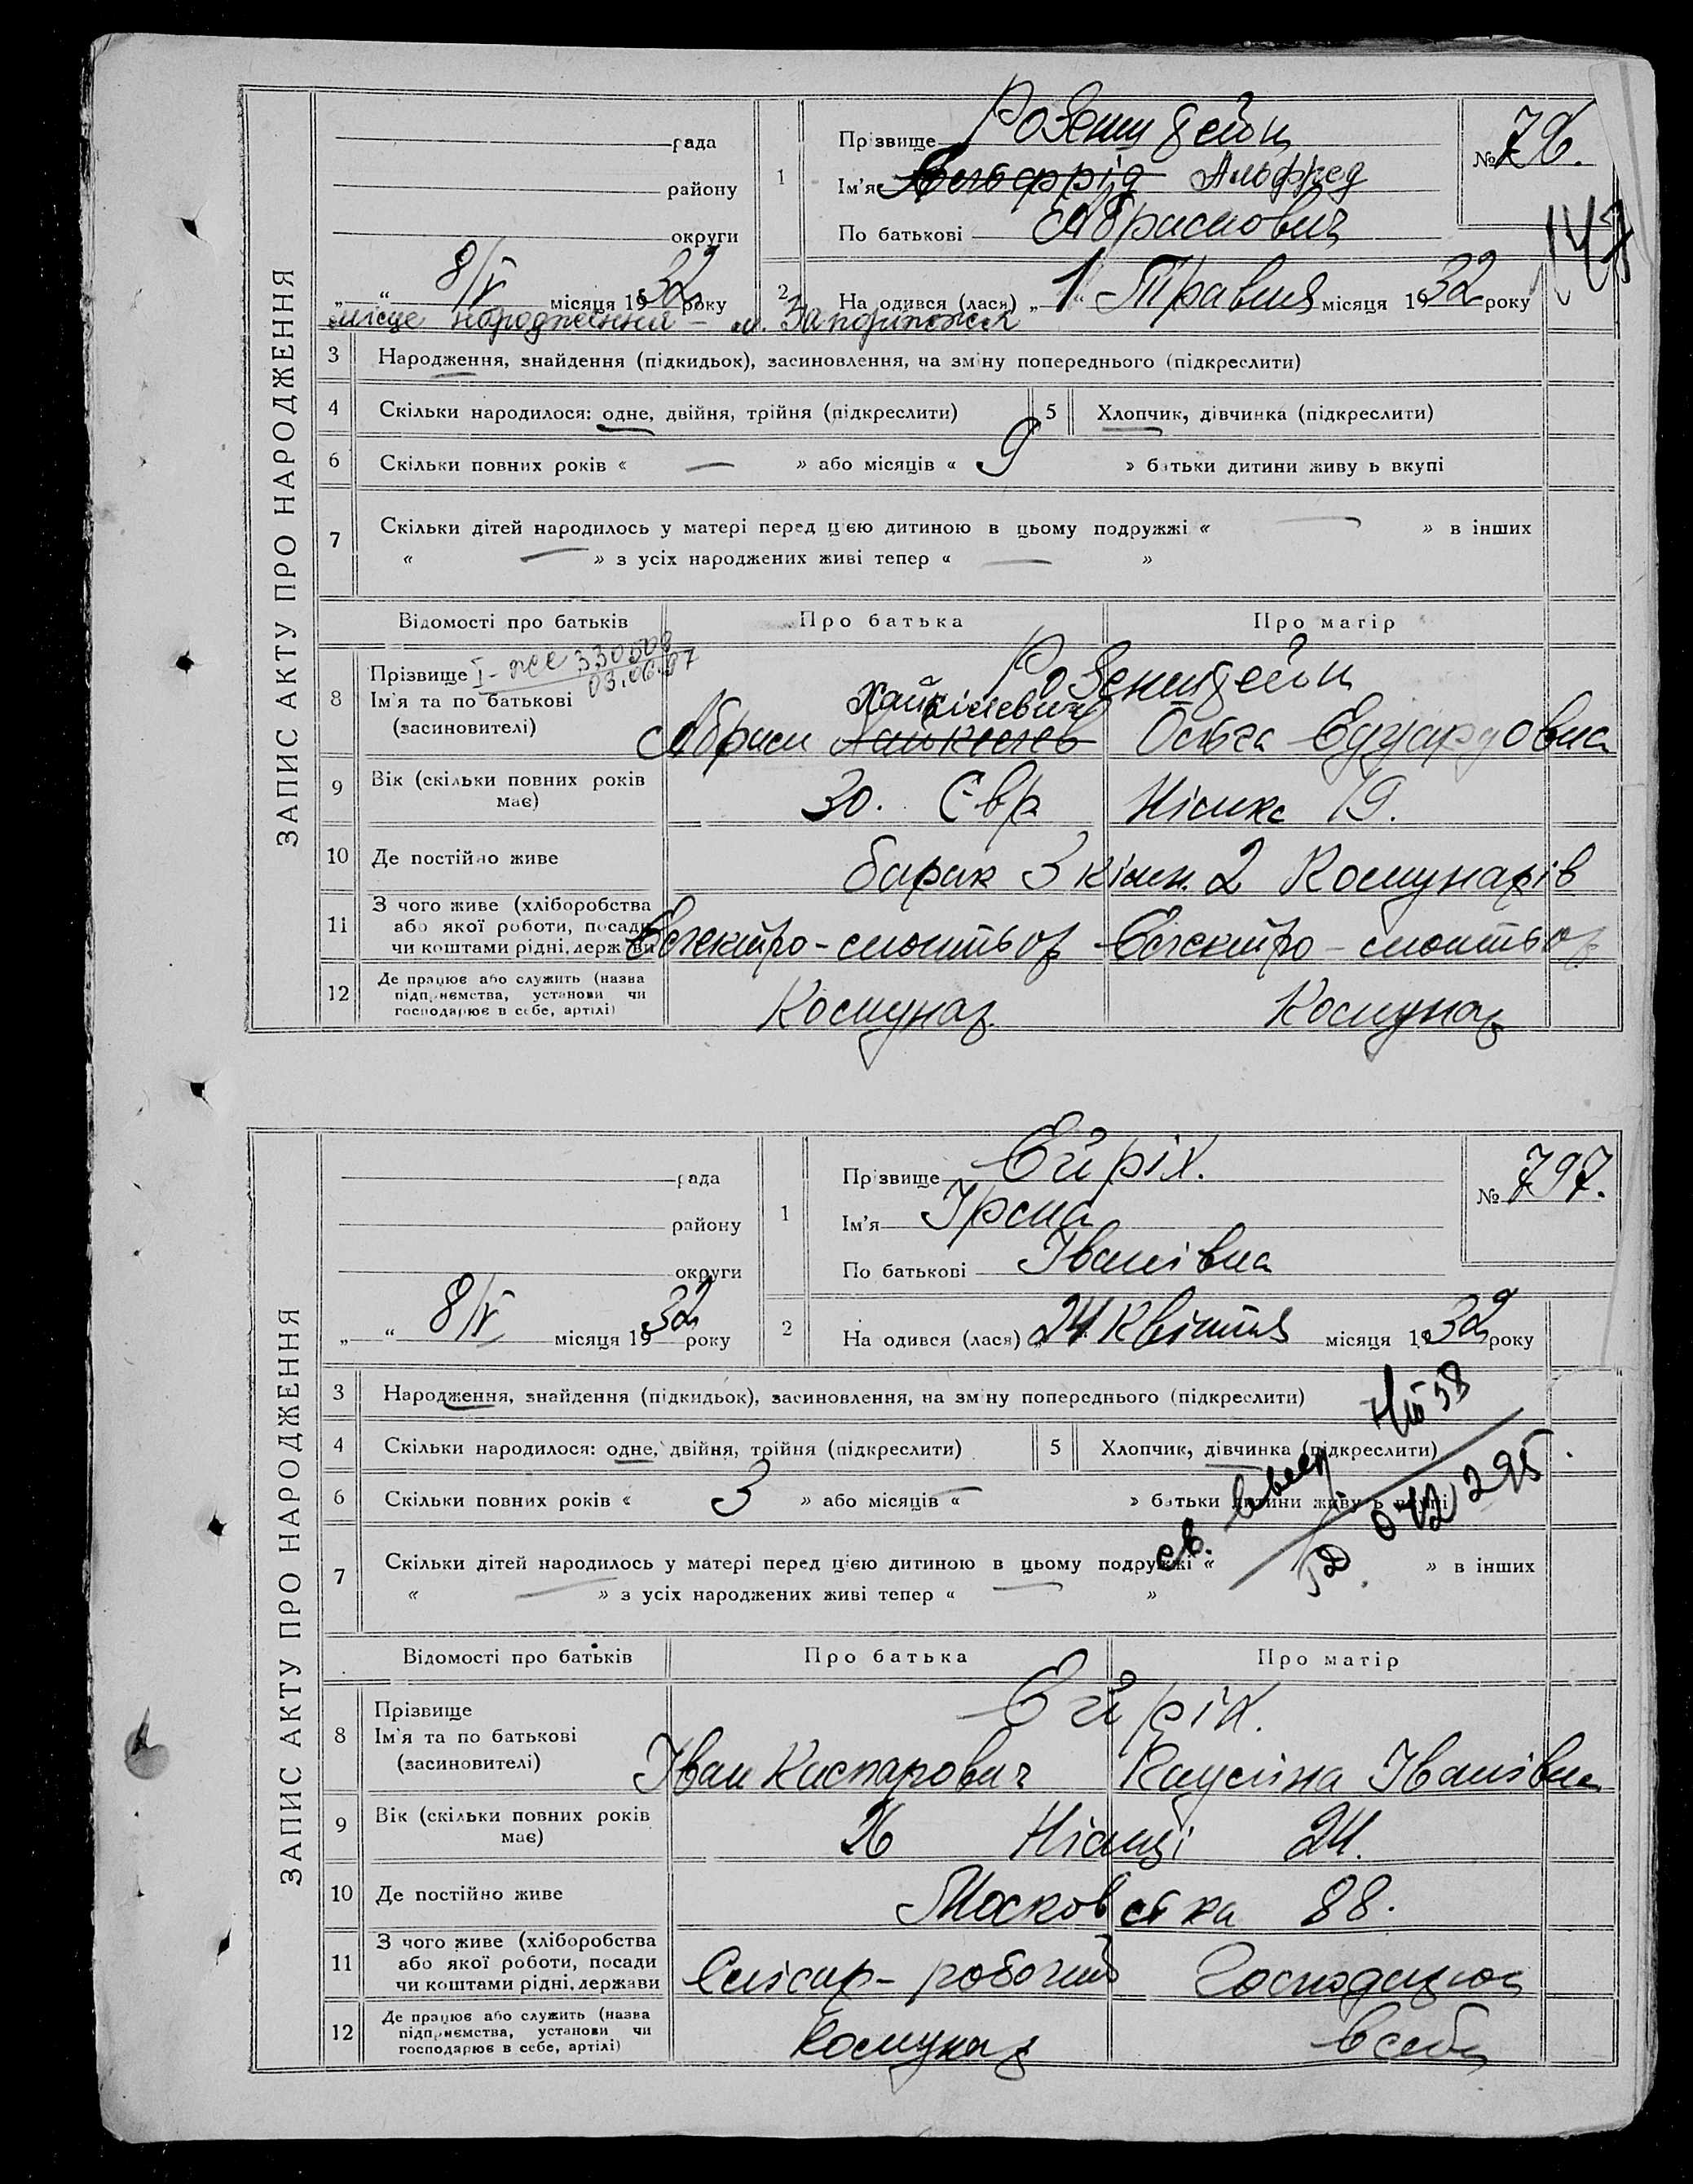 ЗАПИС АКТУ ПРО НАРОДЖЕННЯ
рада
району
округи
8/V місяця 1932 року
місце народження – м. Запоріжжя
1 Прізвище Розенштейн
Ім'я Альфред
По батькові Абрамович
№ 796.
147
2 На одився (лася) „1“ Травня місяця 1932 року
3 Народження, знайдення (підкидьок), засиновлення, на зміну попереднього (підкреслити)
4 Скільки народилося: одне, двійня, трійня (підкреслити) 5 Хлопчик, дівчинка (підкреслити)
6 Скільки повних років « — » або місяців « 9 » батьки дитини живуть вкупі
7 Скільки дітей народилось у матері перед цією дитиною в цьому подружжі « — » в інших
« — » з усіх народжених живі тепер « — »
Відомості про батьків Про батька Про матір
8 Прізвище Розенштейн
I- 330508
03.06.97
Ім'я та по батькові
(засновителі)
Хаймовичем
Абрам Ольга Едуардовна
9 Вік (скільки повних років має) 30. Євр Німка 19.
10 Де постійно живе барак 3 кімн. 2 Комунарів
11 З чого живе (хліборобства або якої роботи, посади чи коштами рідні, держави Електро-монтьор Електро-монтьор
12 Де працює або служить (назва підприємства, установи чи господарює в себе, артілі) Комунар. Комунар
ЗАПИС АКТУ ПРО НАРОДЖЕННЯ
рада
району
округи
8/V місяця 1932 року
1 Прізвище Ейріх.
Ім'я Ірма
По батькові Іванівна
№ 797.
2 На одився (лася) „24 Квітня місяця 1932 року
3 Народження, знайдення (підкидьок), засиновлення, на зміну попереднього (підкреслити)
4 Скільки народилося: одне, двійня, трійня (підкреслити) 5 Хлопчик, дівчинка (підкреслити)
6 Скільки повних років « 3 » або місяців « — » батьки дитини живуть вкупі
7 Скільки дітей народилось у матері перед цією дитиною в цьому подружжі « » в інших
« — » з усіх народжених живі тепер « — »
042295
Відомості про батьків Про батька Про матір
8 Прізвище Ейріх.
Ім'я та по батькові
(засиновителі)
Іван Каспарович Пауліна Іванівна
9 Вік (скільки повних років має) 26 Німці 24.
10 Де постійно живе Московська 88.
11 З чого живе (хліборобства або якої роботи, посади чи коштами рідні, держави Слюсар-робочий Господарює
12 Де працює або служить (назва підприємства, установи чи господарює в себе, артілі) Комунар в себе